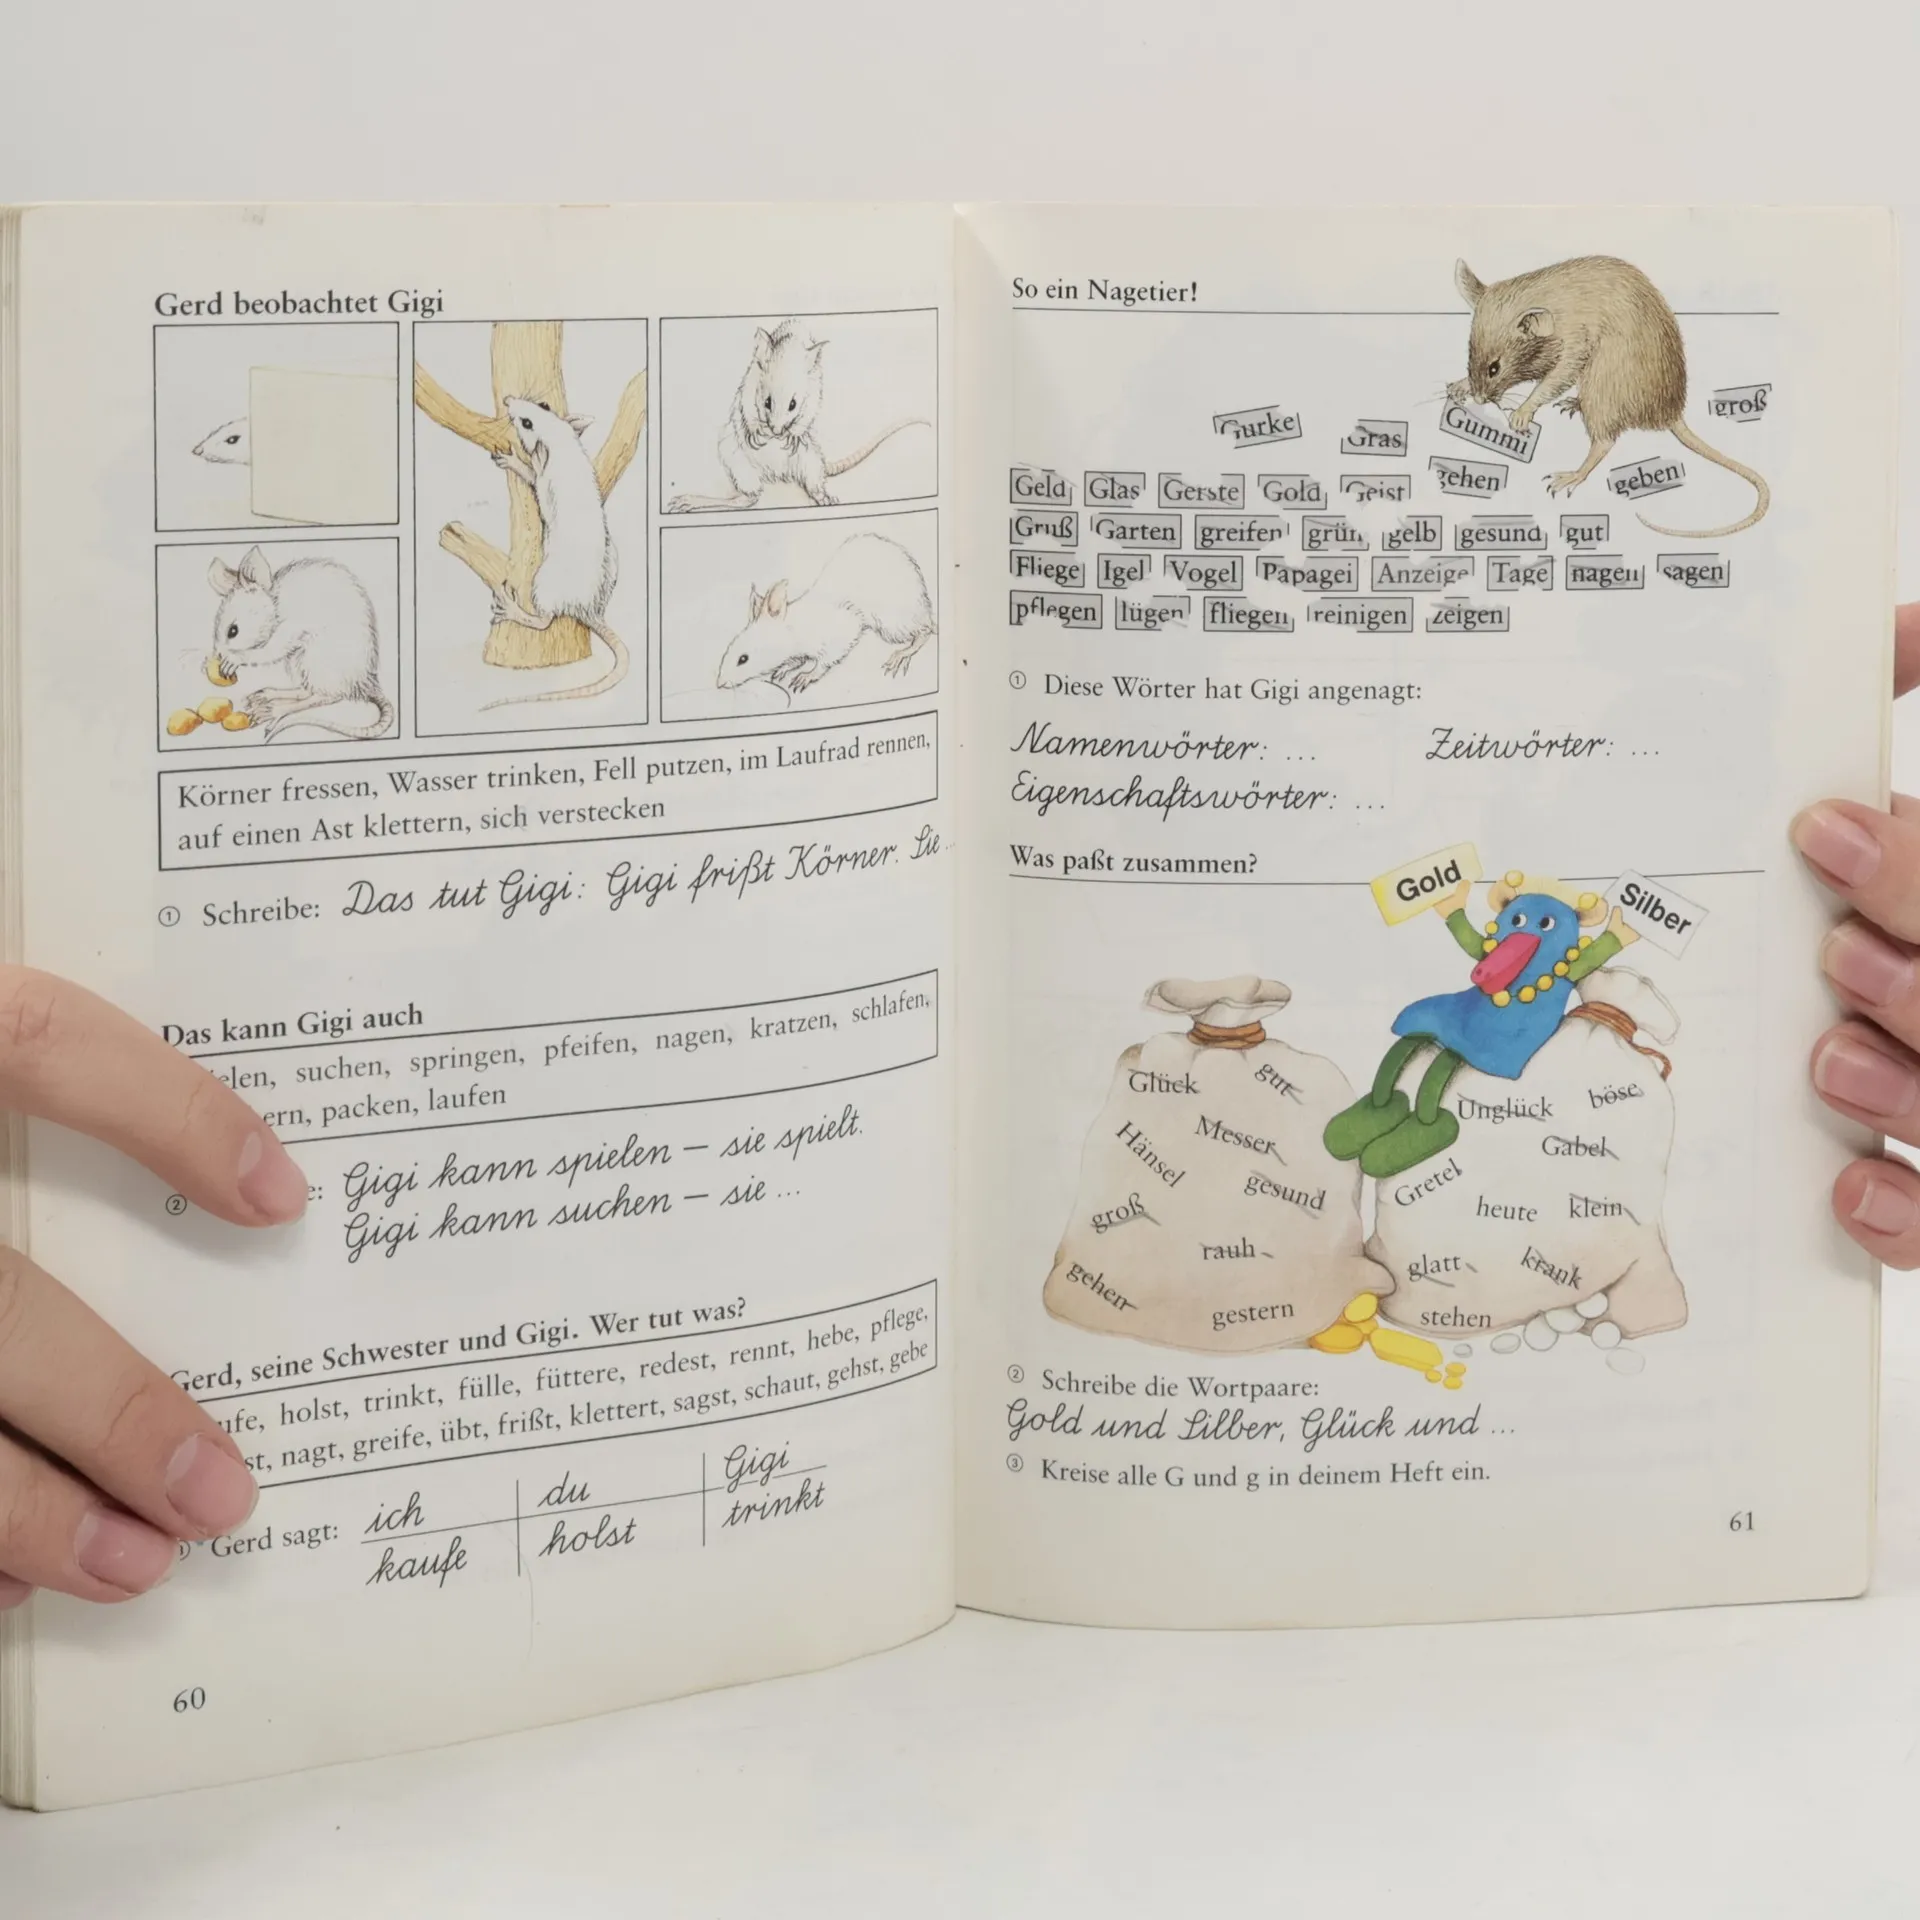 Gerd beobachtet Gigi
Körner fressen, Wasser trinken, Fell putzen, im Laufrad rennen,
auf einen Ast klettern, sich verstecken
① Schreibe: Das tut Gigi: Gigi frißt Körner. Sie ...
Das kann Gigi auch
elen, suchen, springen, pfeifen, nagen, kratzen, schlafen,
ern, packen, laufen
② e: Gigi kann spielen – sie spielt.
Gigi kann suchen – sie ...
Gerd, seine Schwester und Gigi. Wer tut was?
ufe, holst, trinkt, fülle, füttere, redest, rennt, hebe, pflege,
st, nagt, greife, übt, frißt, klettert, sagst, schaut, gehst, gebe
Gerd sagt: ich du Gigi
kaufe holst trinkt
60
So ein Nagetier!
Gurke Gras Gummi groß
gehen geben
Geld Glas Gerste Gold Geist
Gruß Garten greifen grün gelb gesund gut
Fliege Igel Vogel Papagei Anzeige Tage nagen sagen
pflegen lügen fliegen reinigen zeigen
① Diese Wörter hat Gigi angenagt:
Namenwörter: ... Zeitwörter: ...
Eigenschaftswörter: ...
Was paßt zusammen?
Gold
Silber
Glück
gut
Messer
Hänsel
gesund
groß
rauh
gehen
gestern
Unglück
böse
Gabel
Gretel
heute
klein
glatt
krank
stehen
② Schreibe die Wortpaare:
Gold und Silber, Glück und ...
③ Kreise alle G und g in deinem Heft ein.
61